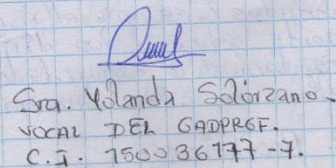 Sra. Yolanda Solórzano.
VOCAL DEL GADPRGF.
C.I. 150036177-7.